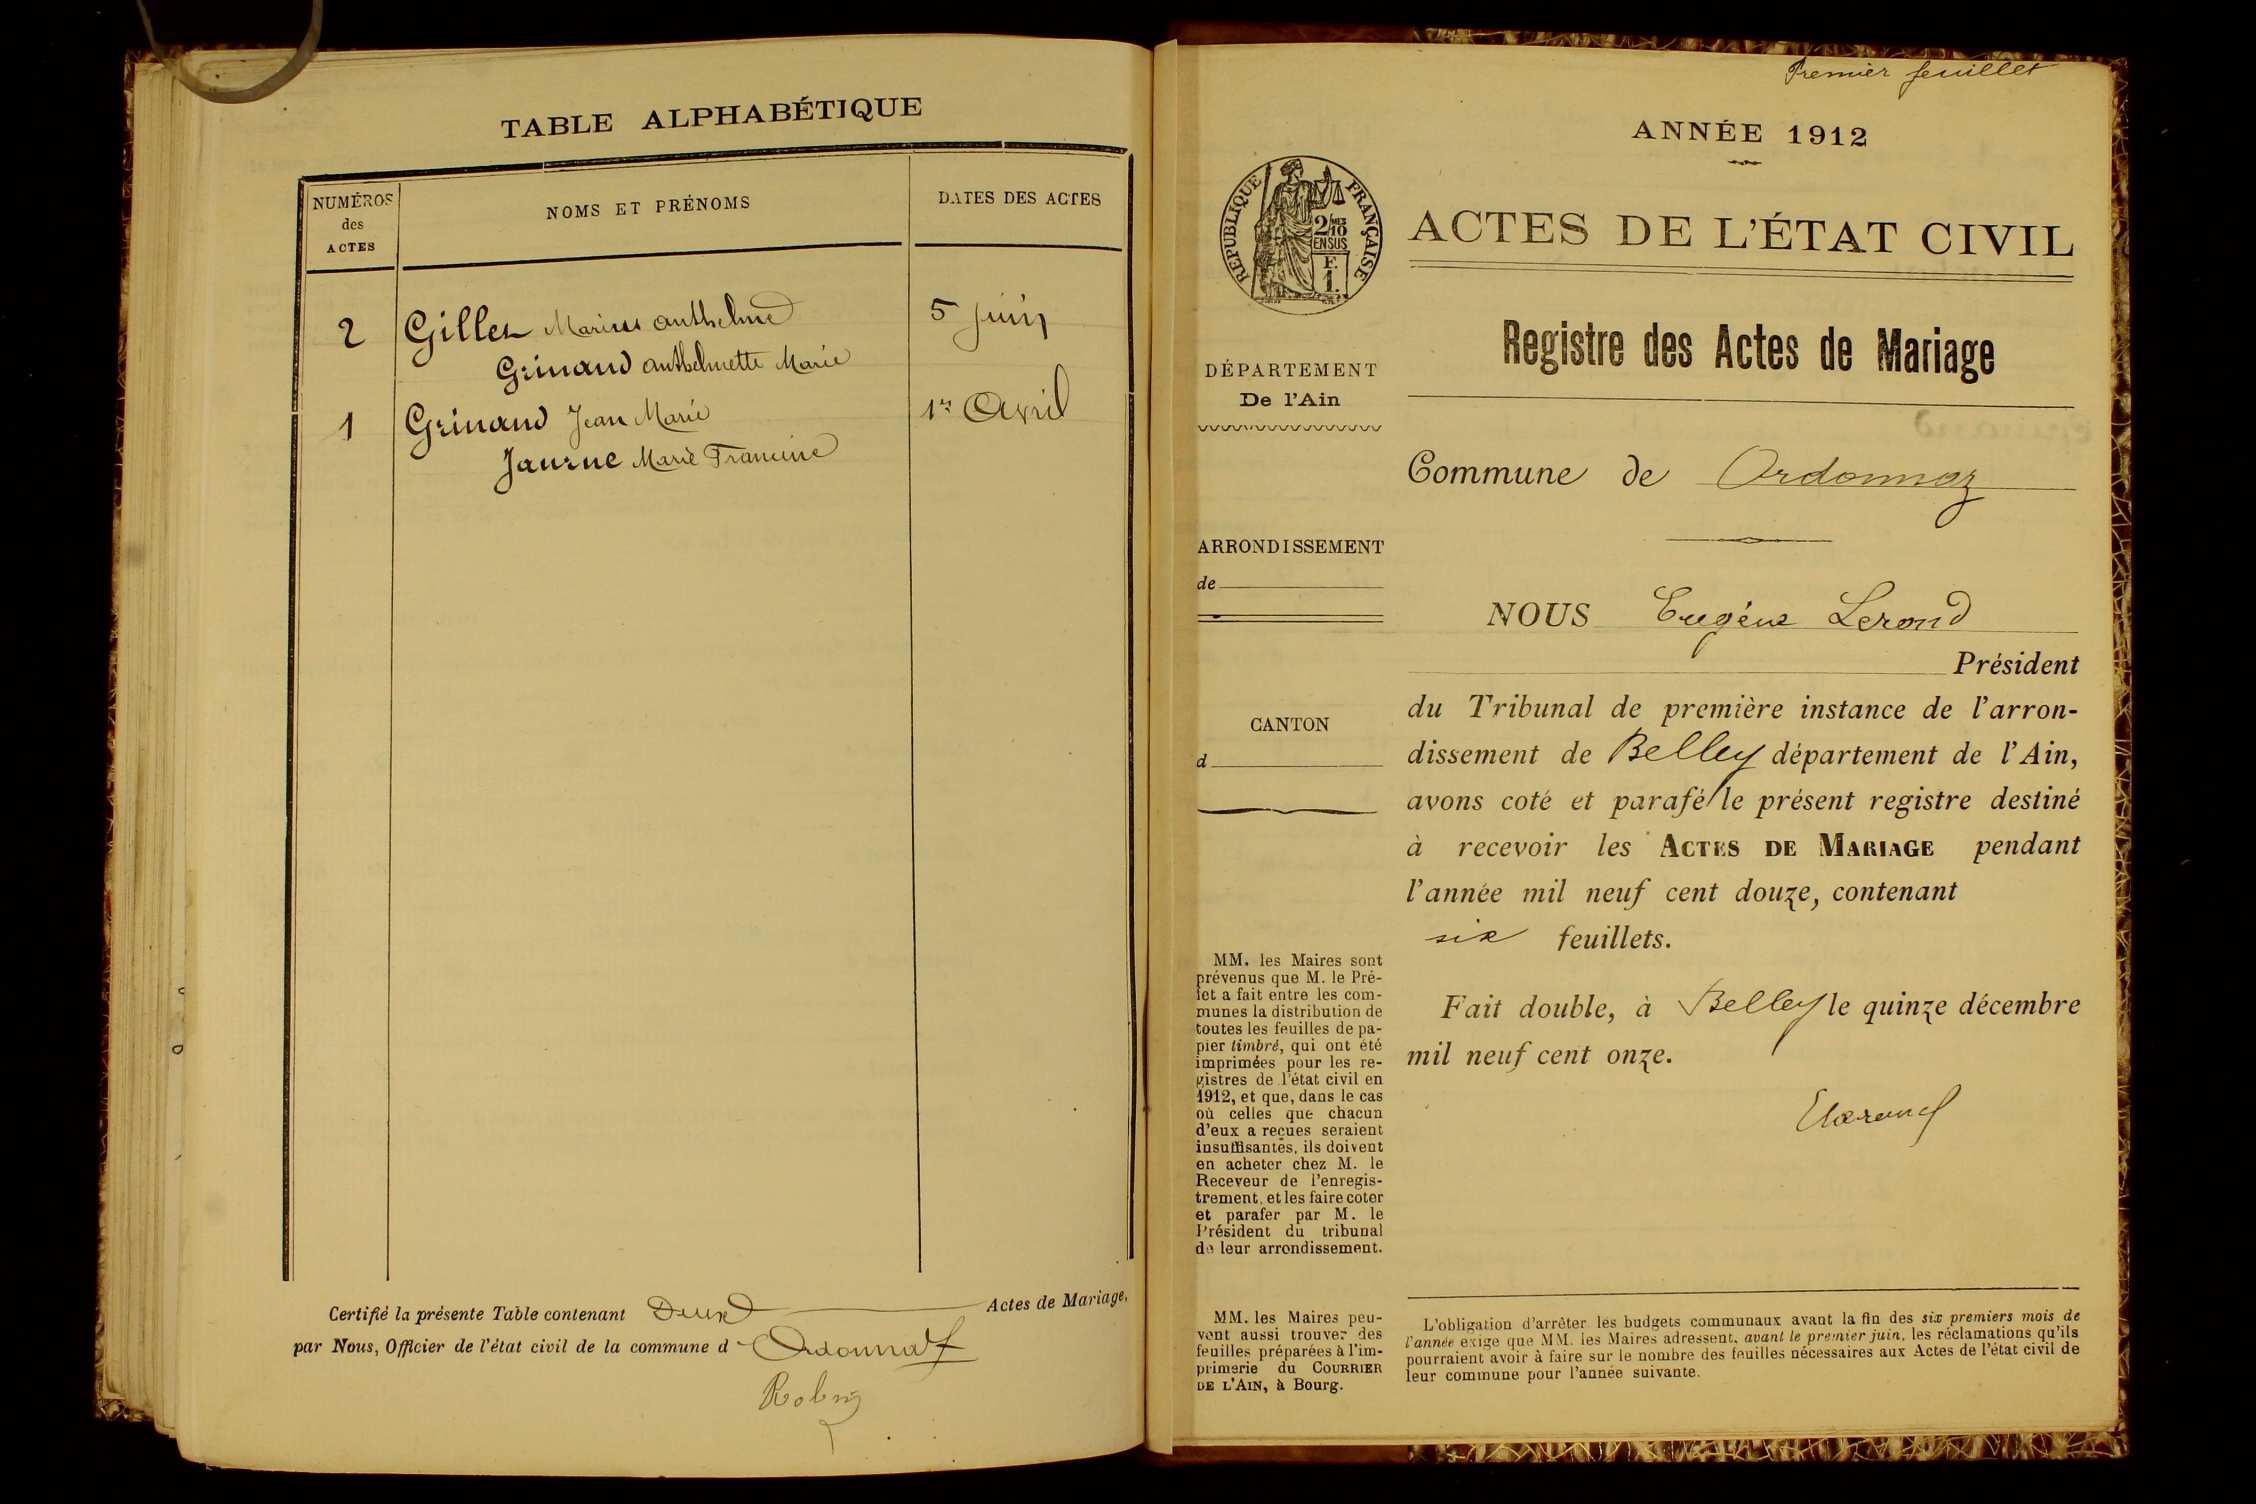 TABLE ALPHABÉTIQUE
NUMÉROS
des
ACTES
NOMS ET PRÉNOMS
DATES DES ACTES
2 Gillet Marius Anthelme 5 Juin
Grinand Anthelmette Marie
1 Grinand Jean Marie 1er Avril
Jaurne Marie Francine
Certifié la présente Table contenant Deux Actes de Mariage,
par Nous, Officier de l'état civil de la commune d'Ordonnaz
Robin
Premier feuillet
ANNÉE 1912
RÉPUBLIQUE FRANÇAISE
2/10
EN SUS
F.
1.
ACTES DE L'ÉTAT CIVIL
Registre des Actes de Mariage
DÉPARTEMENT
De l'Ain
ARRONDISSEMENT
de
CANTON
d
MM. les Maires sont
prévenus que M. le Pré-
fet a fait entre les com-
munes la distribution de
toutes les feuilles de pa-
pier timbré, qui ont été
imprimées pour les re-
gistres de l'état civil en
1912, et que, dans le cas
où celles que chacun
d'eux a reçues seraient
insuffisantes, ils doivent
en acheter chez M. le
Receveur de l'enregis-
trement, et les faire coter
et parafer par M. le
Président du tribunal
de leur arrondissement.
MM. les Maires peu-
vent aussi trouver des
feuilles préparées à l'im-
primerie du COURRIER
DE L'AIN, à Bourg.
Commune de Ordonnaz
NOUS Eugène Lerond
Président
du Tribunal de première instance de l'arron-
dissement de Belley département de l'Ain,
avons coté et parafé le présent registre destiné
à recevoir les ACTES DE MARIAGE pendant
l'année mil neuf cent douze, contenant
six feuillets.
Fait double, à Belley le quinze décembre
mil neuf cent onze.
L'obligation d'arrêter les budgets communaux avant la fin des six premiers mois de
l'année exige que MM. les Maires adressent, avant le premier juin, les réclamations qu'ils
pourraient avoir à faire sur le nombre des feuilles nécessaires aux Actes de l'état civil de
leur commune pour l'année suivante.